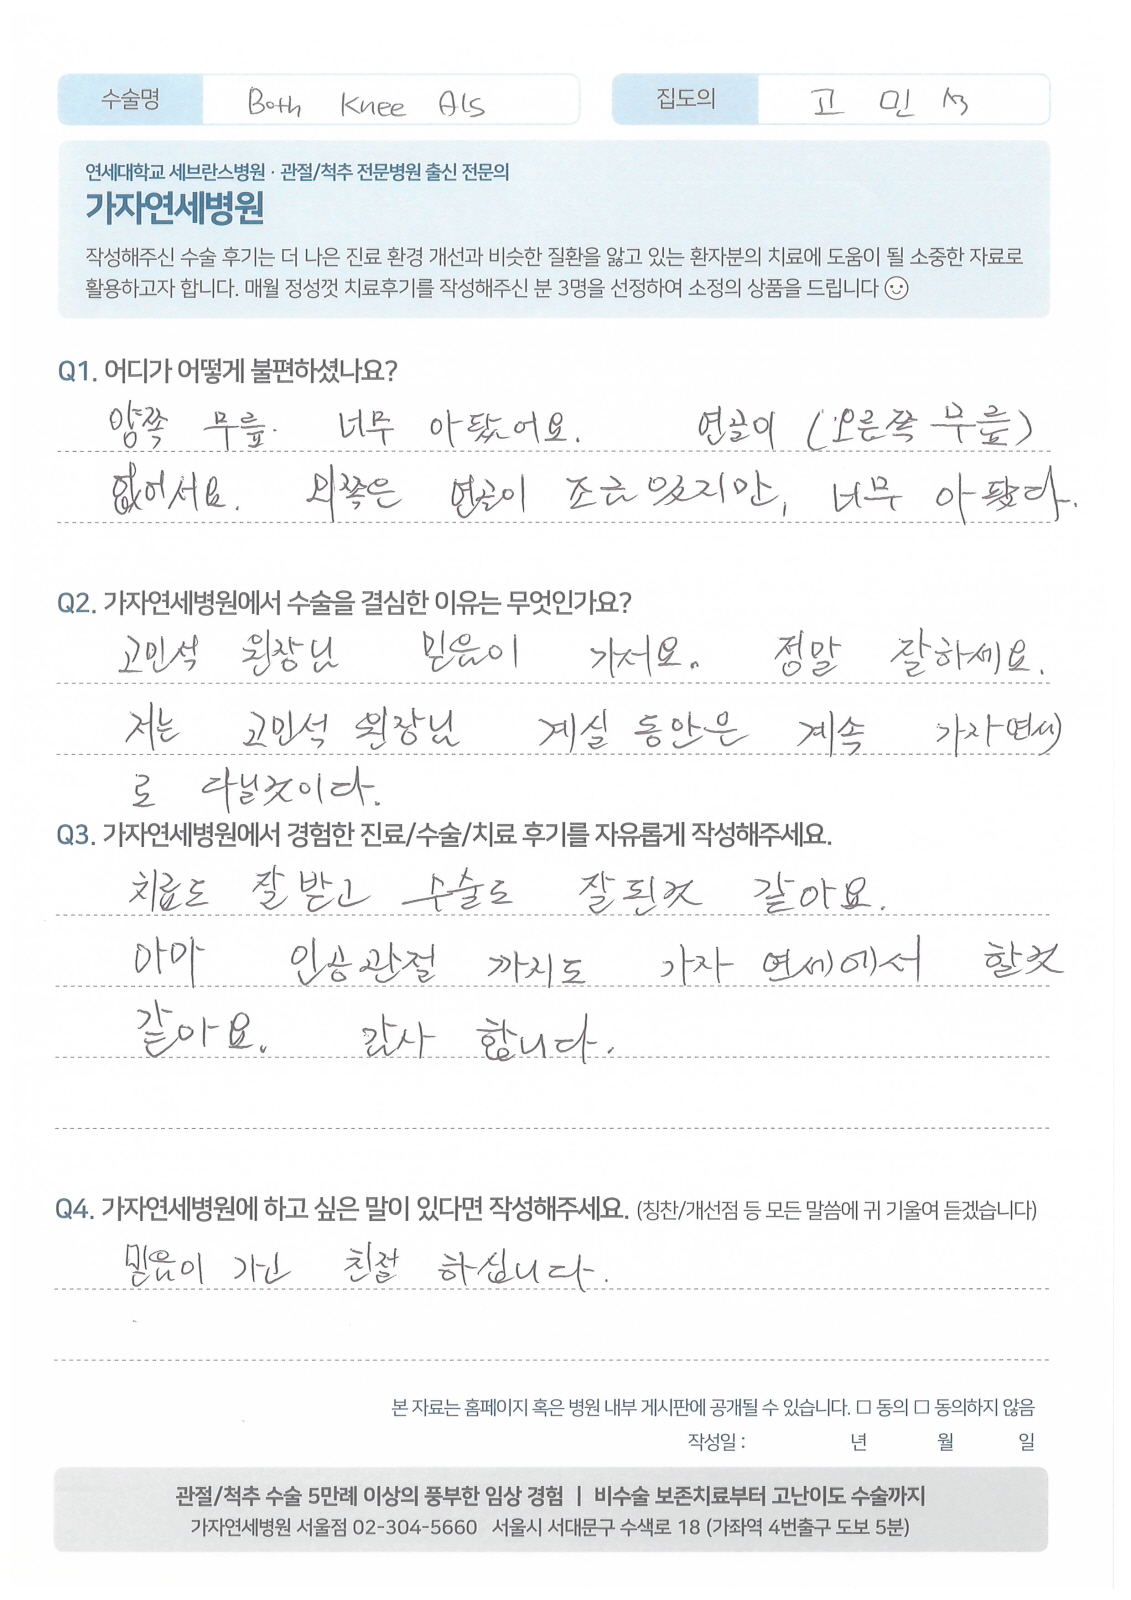 수술명 Both Knee A/S 집도의 고 민 석
연세대학교 세브란스병원 · 관절/척추 전문병원 출신 전문의
가자연세병원
작성해주신 수술 후기는 더 나은 진료 환경 개선과 비슷한 질환을 앓고 있는 환자분의 치료에 도움이 될 소중한 자료로
활용하고자 합니다. 매월 정성껏 치료후기를 작성해주신 분 3명을 선정하여 소정의 상품을 드립니다
Q1. 어디가 어떻게 불편하셨나요?
양쪽 무릎. 너무 아팠어요. 연골이 (오른쪽 무릎)
없어서요. 왼쪽은 연골이 조금 있지만, 너무 아팠다.
Q2. 가자연세병원에서 수술을 결심한 이유는 무엇인가요?
고민석 원장님 믿음이 가서요. 정말 잘하세요.
저는 고민석 원장님 계실 동안은 계속 가자연세
로 다닐것이다.
Q3. 가자연세병원에서 경험한 진료/수술/치료 후기를 자유롭게 작성해주세요.
치료도 잘 받고 수술도 잘 된것 같아요.
아마 인공관절 까지도 가자 연세에서 할것
같아요. 감사 합니다.
Q4. 가자연세병원에 하고 싶은 말이 있다면 작성해주세요. (칭찬/개선점 등 모든 말씀에 귀 기울여 듣겠습니다)
믿음이 가고 친절 하십니다.
본 자료는 홈페이지 혹은 병원 내부 게시판에 공개될 수 있습니다. □ 동의 □ 동의하지 않음
작성일 : 년 월 일
관절/척추 수술 5만례 이상의 풍부한 임상 경험 | 비수술 보존치료부터 고난이도 수술까지
가자연세병원 서울점 02-304-5660 서울시 서대문구 수색로 18 (가좌역 4번출구 도보 5분)